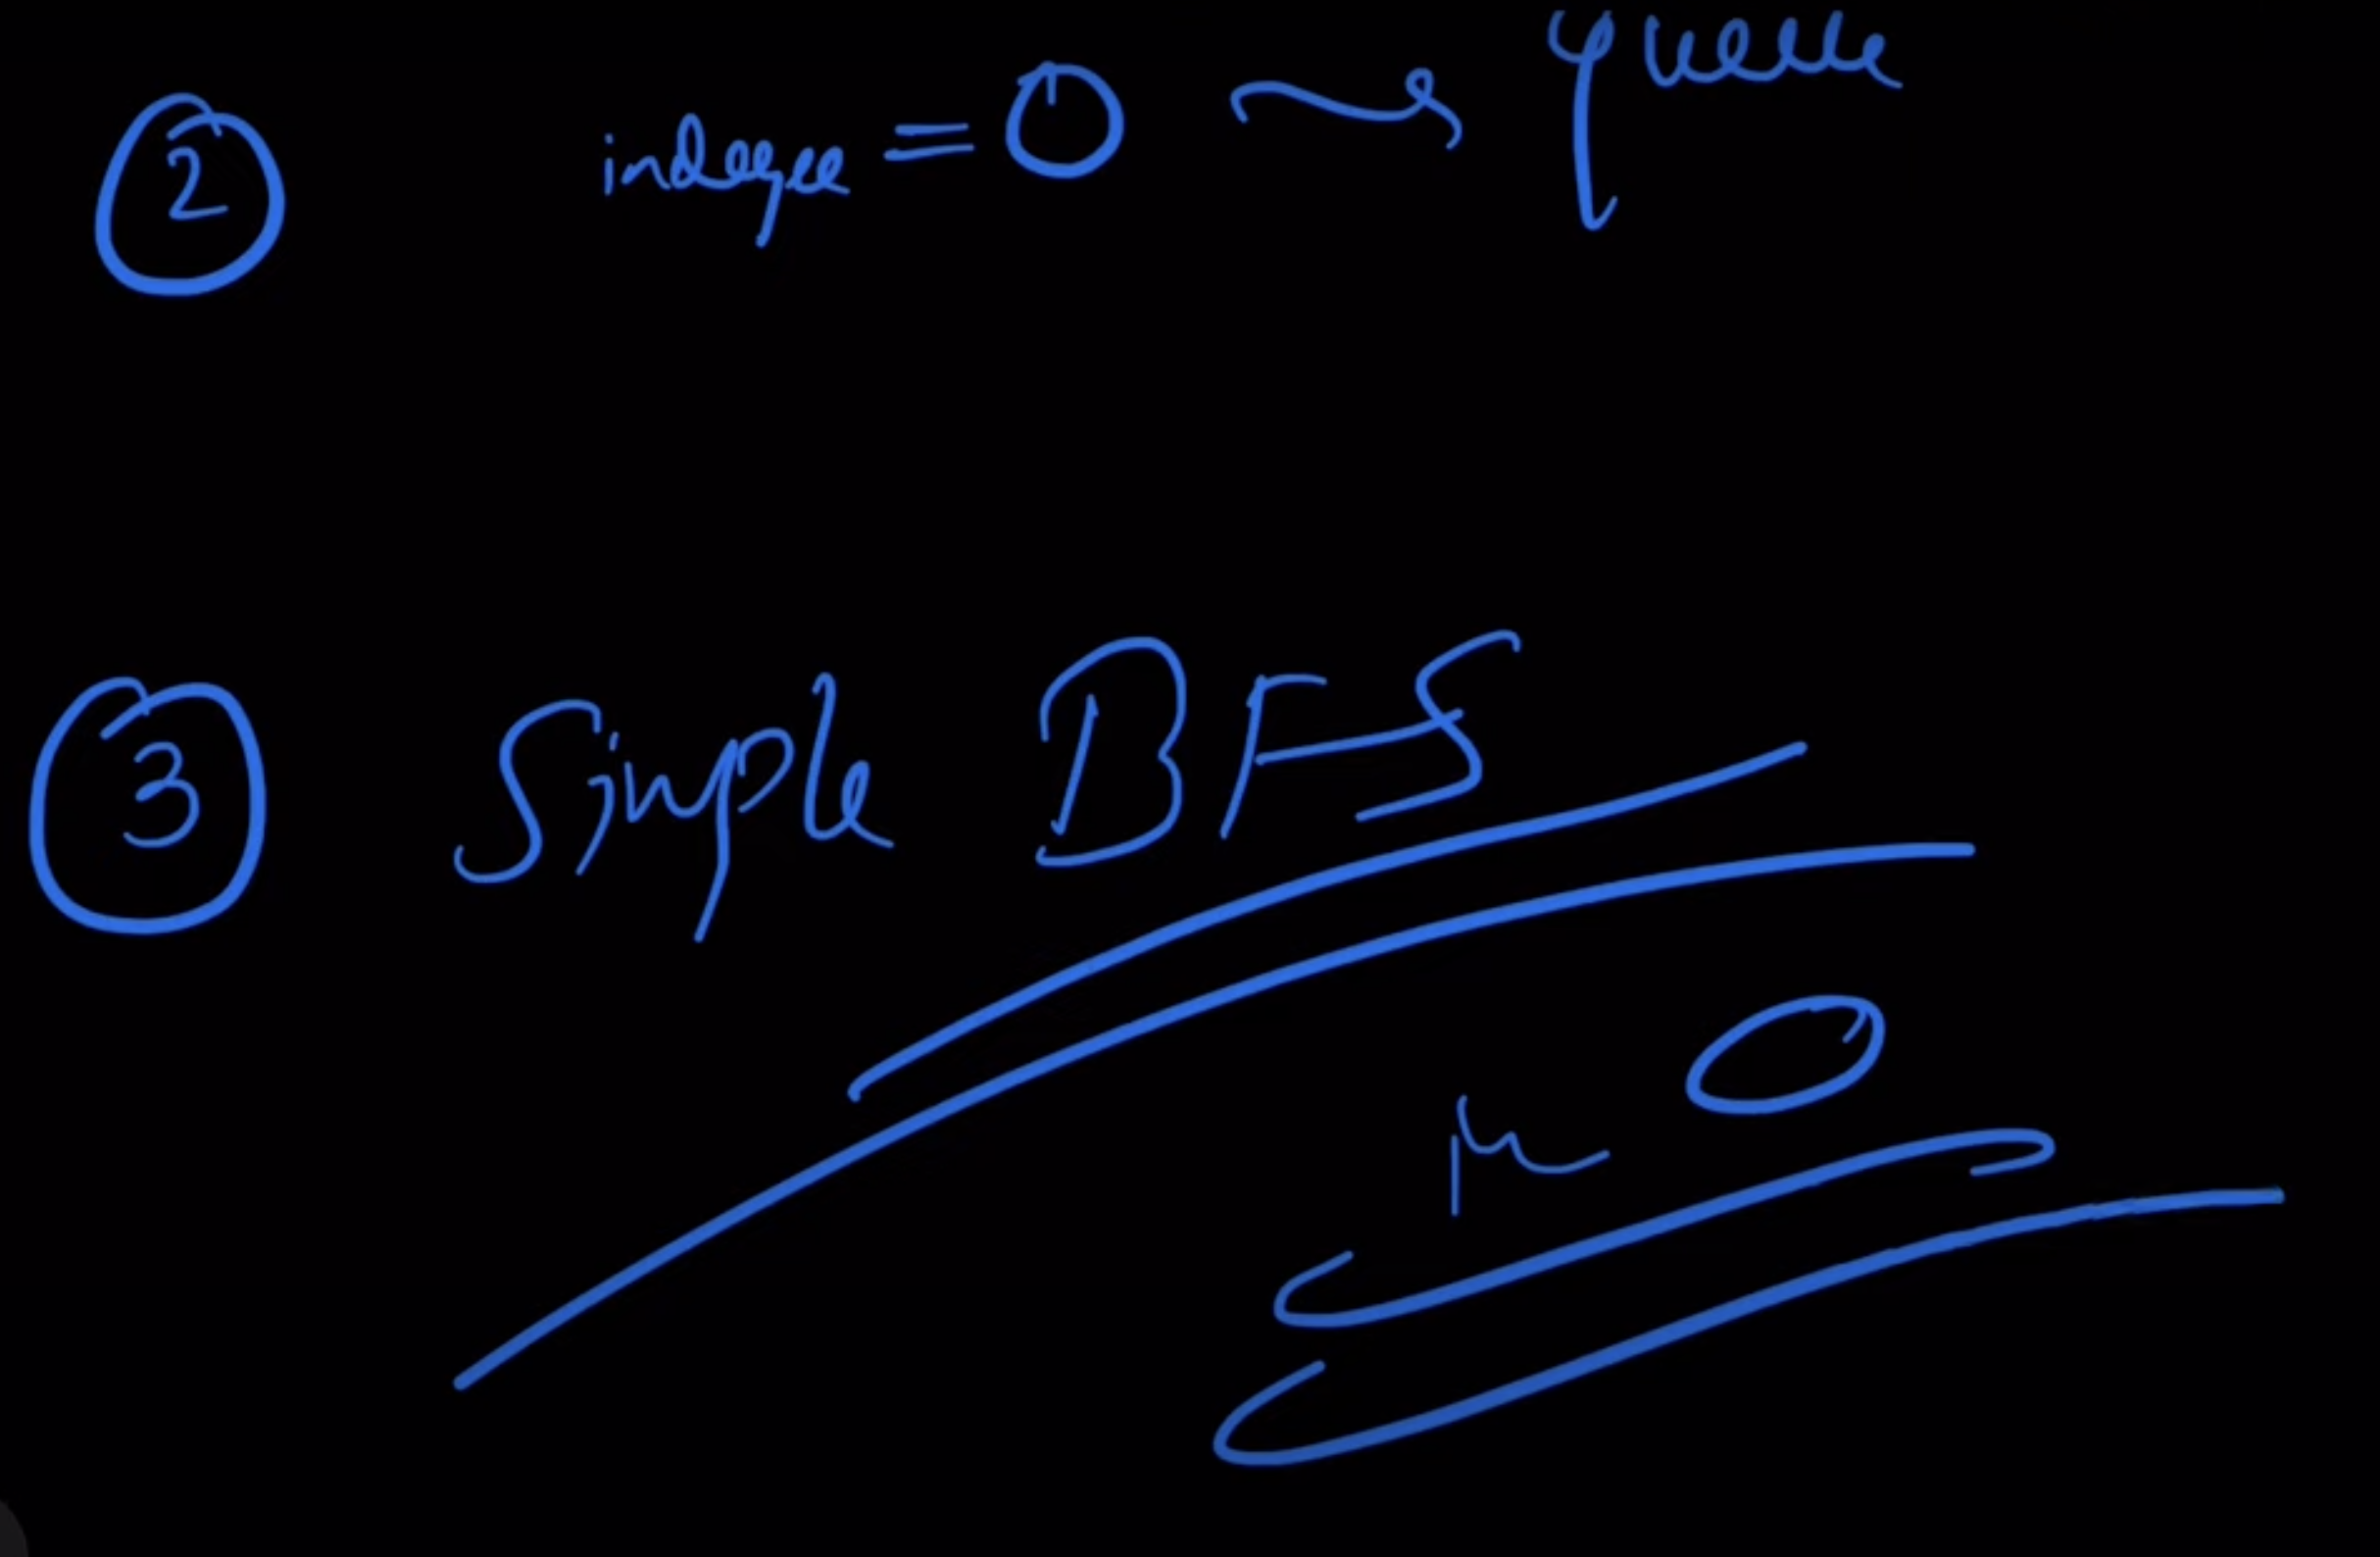 2 indegree = 0 → queue
3 Simple BFS